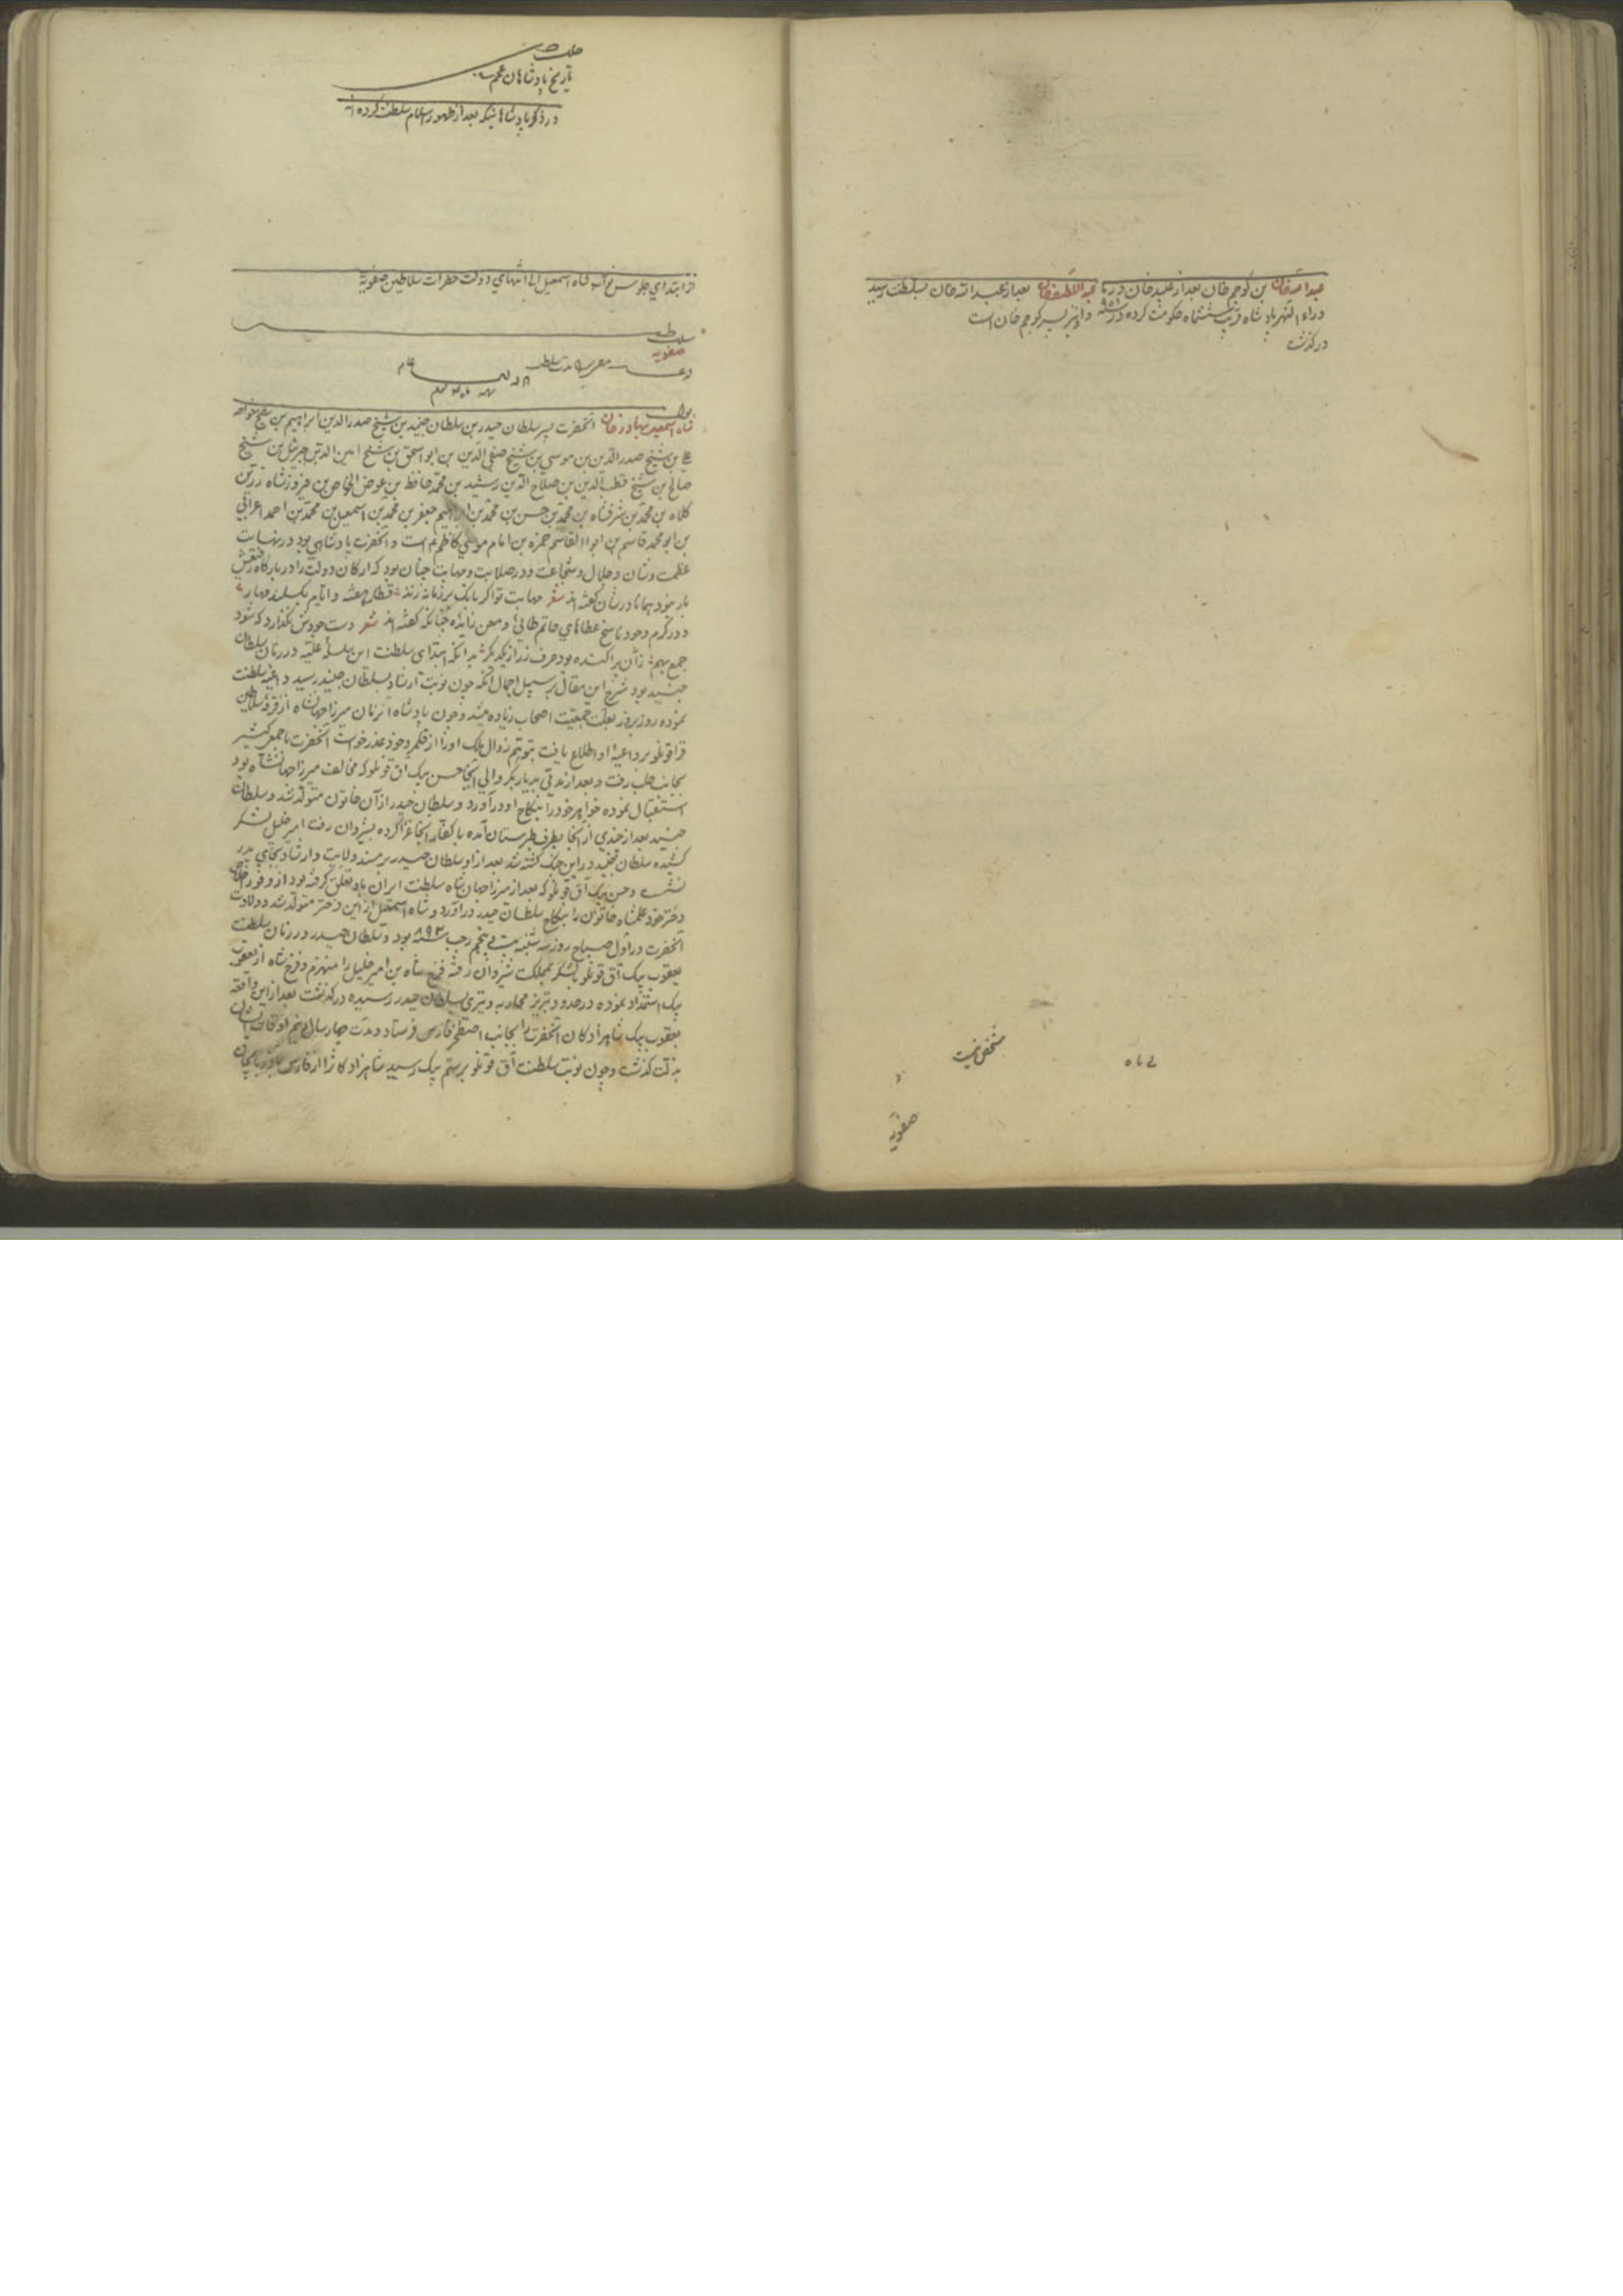 عبدالله خان بن کوجم خان بعد از عبید خان در
وراء النهر پادشاه قریب ششماه حکومت کرده در
درکذشت
عبداللطیف خان بعد از عبدالله خان بسلطنت رسید
و او نیز پسر کوجم خان است
مشخص نیست
صفویه
تاریخ پادشاهان عجم
در ذکر پادشاهانیکه بعد از ظهور اسلام سلطنت کرده‌اند
از ابتدای جلوس نواب شاه اسمعیل الی انتهای دولت حضرات سلاطین صفویة
صفویه
شاه اسمعیل بهادر خان آنحضرت پسر سلطان حیدر بن سلطان جنید بن شیخ صدرالدین ابراهیم بن شیخ خواجه
علی بن شیخ صدرالدین بن موسی بن شیخ صفی الدین بن ابو اسحق بن شیخ امین الدین جبرئیل بن شیخ
صالح بن شیخ قطب الدین بن صلاح الدین رشید بن محمد حافظ بن عوض الخواص بن فیروز شاه زرین
کلاه بن محمد بن شرفشاه بن محمد بن حسن بن محمد بن ابراهیم جعفر بن محمد بن اسمعیل بن محمد بن احمد اعرابی
بن ابو محمد قاسم بن ابوالقاسم حمزه بن امام موسی کاظم است و آنحضرت پادشاهی بود در نهایت
عظمت و شان و جلال و شجاعت و در صلابت و مهابت چنان بود که ارکان دولت را در بارکاه رفیعش
بار نبود همانا در شان کفته اند شعر مهابت تو اکر بانک بر زمانه زند قطار هفته و ایام بکسلد مهار
و در کرم وجود ناسخ عطاهای حاتم طائی و معن زایده چنانکه کفته اند شعر دست جودش نکذارد که شود
جمع بهم زان پراکنده بود حرف زر از یکدیکر بدانکه ابتدای سلطنت این سلسله علیه در زمان سلطان
جنید بود شرح این مقال بر سبیل اجمال آنکه چون نوبت ارشاد بسلطان جنید رسید داعیه سلطنت
نموده روز بروز جمعیت اصحاب زیاده میشد و چون پادشاه آنزمان میرزا جهانشاه از فرقه سلاطین
قراقونلو بر داعیه او اطلاع یافت بتوهم زوال ملک او را از قلمرو خود عذر خواست آنحضرت با جمع کثیر
بجانب حلب رفت و بعد از مدتی بدیاربکر والی آنجا حسن بیک آق قونلو که مخالف میرزا جهانشاه بود
استقبال نموده خواهر خود را بنکاح او درآورد و سلطان حیدر از آن خاتون متولد شد و سلطان
جنید بعد از چندی از آنجا بطرف طبرستان آمده با کفار آنجا غزا کرده بشروان رفت امیر خلیل لشکر
کشیده سلطان جنید در این جنک کشته شد بعد از او سلطان حیدر بر مسند ولایت و ارشاد بجای پدر
نشست و حسن بیک آق قونلو که بعد از میرزا جهان شاه سلطنت ایران باو تعلق کرفته بود از وفور
دختر خود علمشاه خاتون را بنکاح سلطان حیدر درآورد و شاه اسمعیل از این دختر متولد شد و ولادت
آنحضرت در اول صباح روز سه شنبه بیست و پنجم رجب سنه ۸۹۲ بود و سلطان حیدر در زمان سلطنت
یعقوب بیک آق قونلو لشکر بمملکت شیروان رفته فرخ شاه بن امیر خلیل را منهزم و فرخ شاه از یعقوب
بیک استمداد نموده در حدود تبریز محاربه و تیری بسلطان حیدر رسیده درکذشت بعد از این واقعه
یعقوب بیک شاهزادکان آنحضرت را بجانب اصطخر فارس فرستاد و مدت چهار سال و نیم اوقات ایشان
کذشت و چون نوبت سلطنت آق قونلو برستم بیک رسید شاهزادکانرا از فارس بآذربایجان